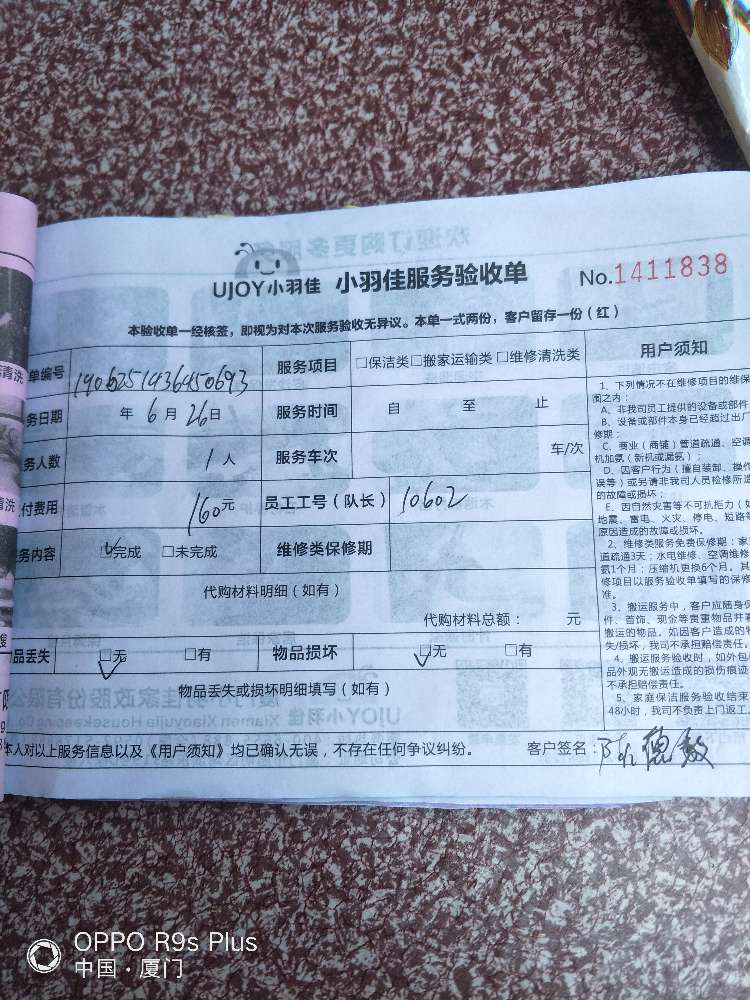 UJOY小羽佳 小羽佳服务验收单 No.1411838
本验收单一经核签，即视为对本次服务验收无异议。本单一式两份，客户留存一份（红）
单编号 服务项目 □保洁类□搬家运输类□维修清洗类
务日期 年6月26日 服务时间 自 至 止
务人数 1人 服务车次 车/次
付费用 160元 员工工号（队长） 10602
务内容 ☑完成 □未完成 维修类保修期
代购材料明细（如有）
代购材料总额： 元
品丢失 ☑无 □有 物品损坏 ☑无 □有
物品丢失或损坏明细填写（如有）
本人对以上服务信息以及《用户须知》均已确认无误，不存在任何争议纠纷。 客户签名：
用户须知
1、下列情况不在维修项目的维保
围之内：
A、非我司员工提供的设备或部件
B、设备或部件本身已经超过出厂
修期；
C、商业（商铺）管道疏通、空调
机加氨（新机或漏氨）；
D、因客户行为（擅自装卸、操作
误等）或另请非我司人员检修所造
的故障或损坏；
E、因自然灾害等不可抗拒力（如
地震、雷电、火灾、停电、短路等
原因造成的故障或损坏。
2、维修类服务免费保修期：家
道疏通3天；水电维修、空调维修
氨1个月；压缩机更换6个月。其
修项目以服务验收单填写的保修
准。
3、搬运服务中，客户应随身保
件、首饰、现金等贵重物品并看
搬运的物品。如因客户造成的物
失/损坏，我司不承担赔偿责任。
4、搬运服务验收时，如外包
品外观无搬运造成的损伤痕迹
不承担赔偿责任。
5、家庭保洁服务验收结束
48小时，我司不负责上门返工。
清洗
清洗
OPPO R9s Plus
中国·厦门